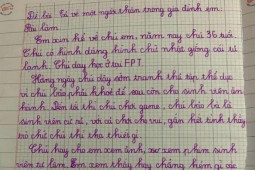 Đề bài: Tả về một người thân trong gia đình em
Bài làm
Em xin kể về chú em, năm nay chú 36 tuổi.
Chú có hình dáng hình chữ nhật giống cái tủ
lạnh. Chú dạy học ở tại FPT.
Hàng ngày chú dậy sớm tranh thủ tập thể dục
vì chú bảo phải khoẻ để sau còn cho sinh viên ăn
hành. Đến tối thì chú chơi game, chú bảo là
sinh viên cứ rớt, với cả chơi chứ, gần hết tính thấy
trò chứ chú thì tha thiết gì.
Chú hay cho em xem ảnh, xem phim sinh
viên tự làm. Em xem thấy hay chẳng kém gì các